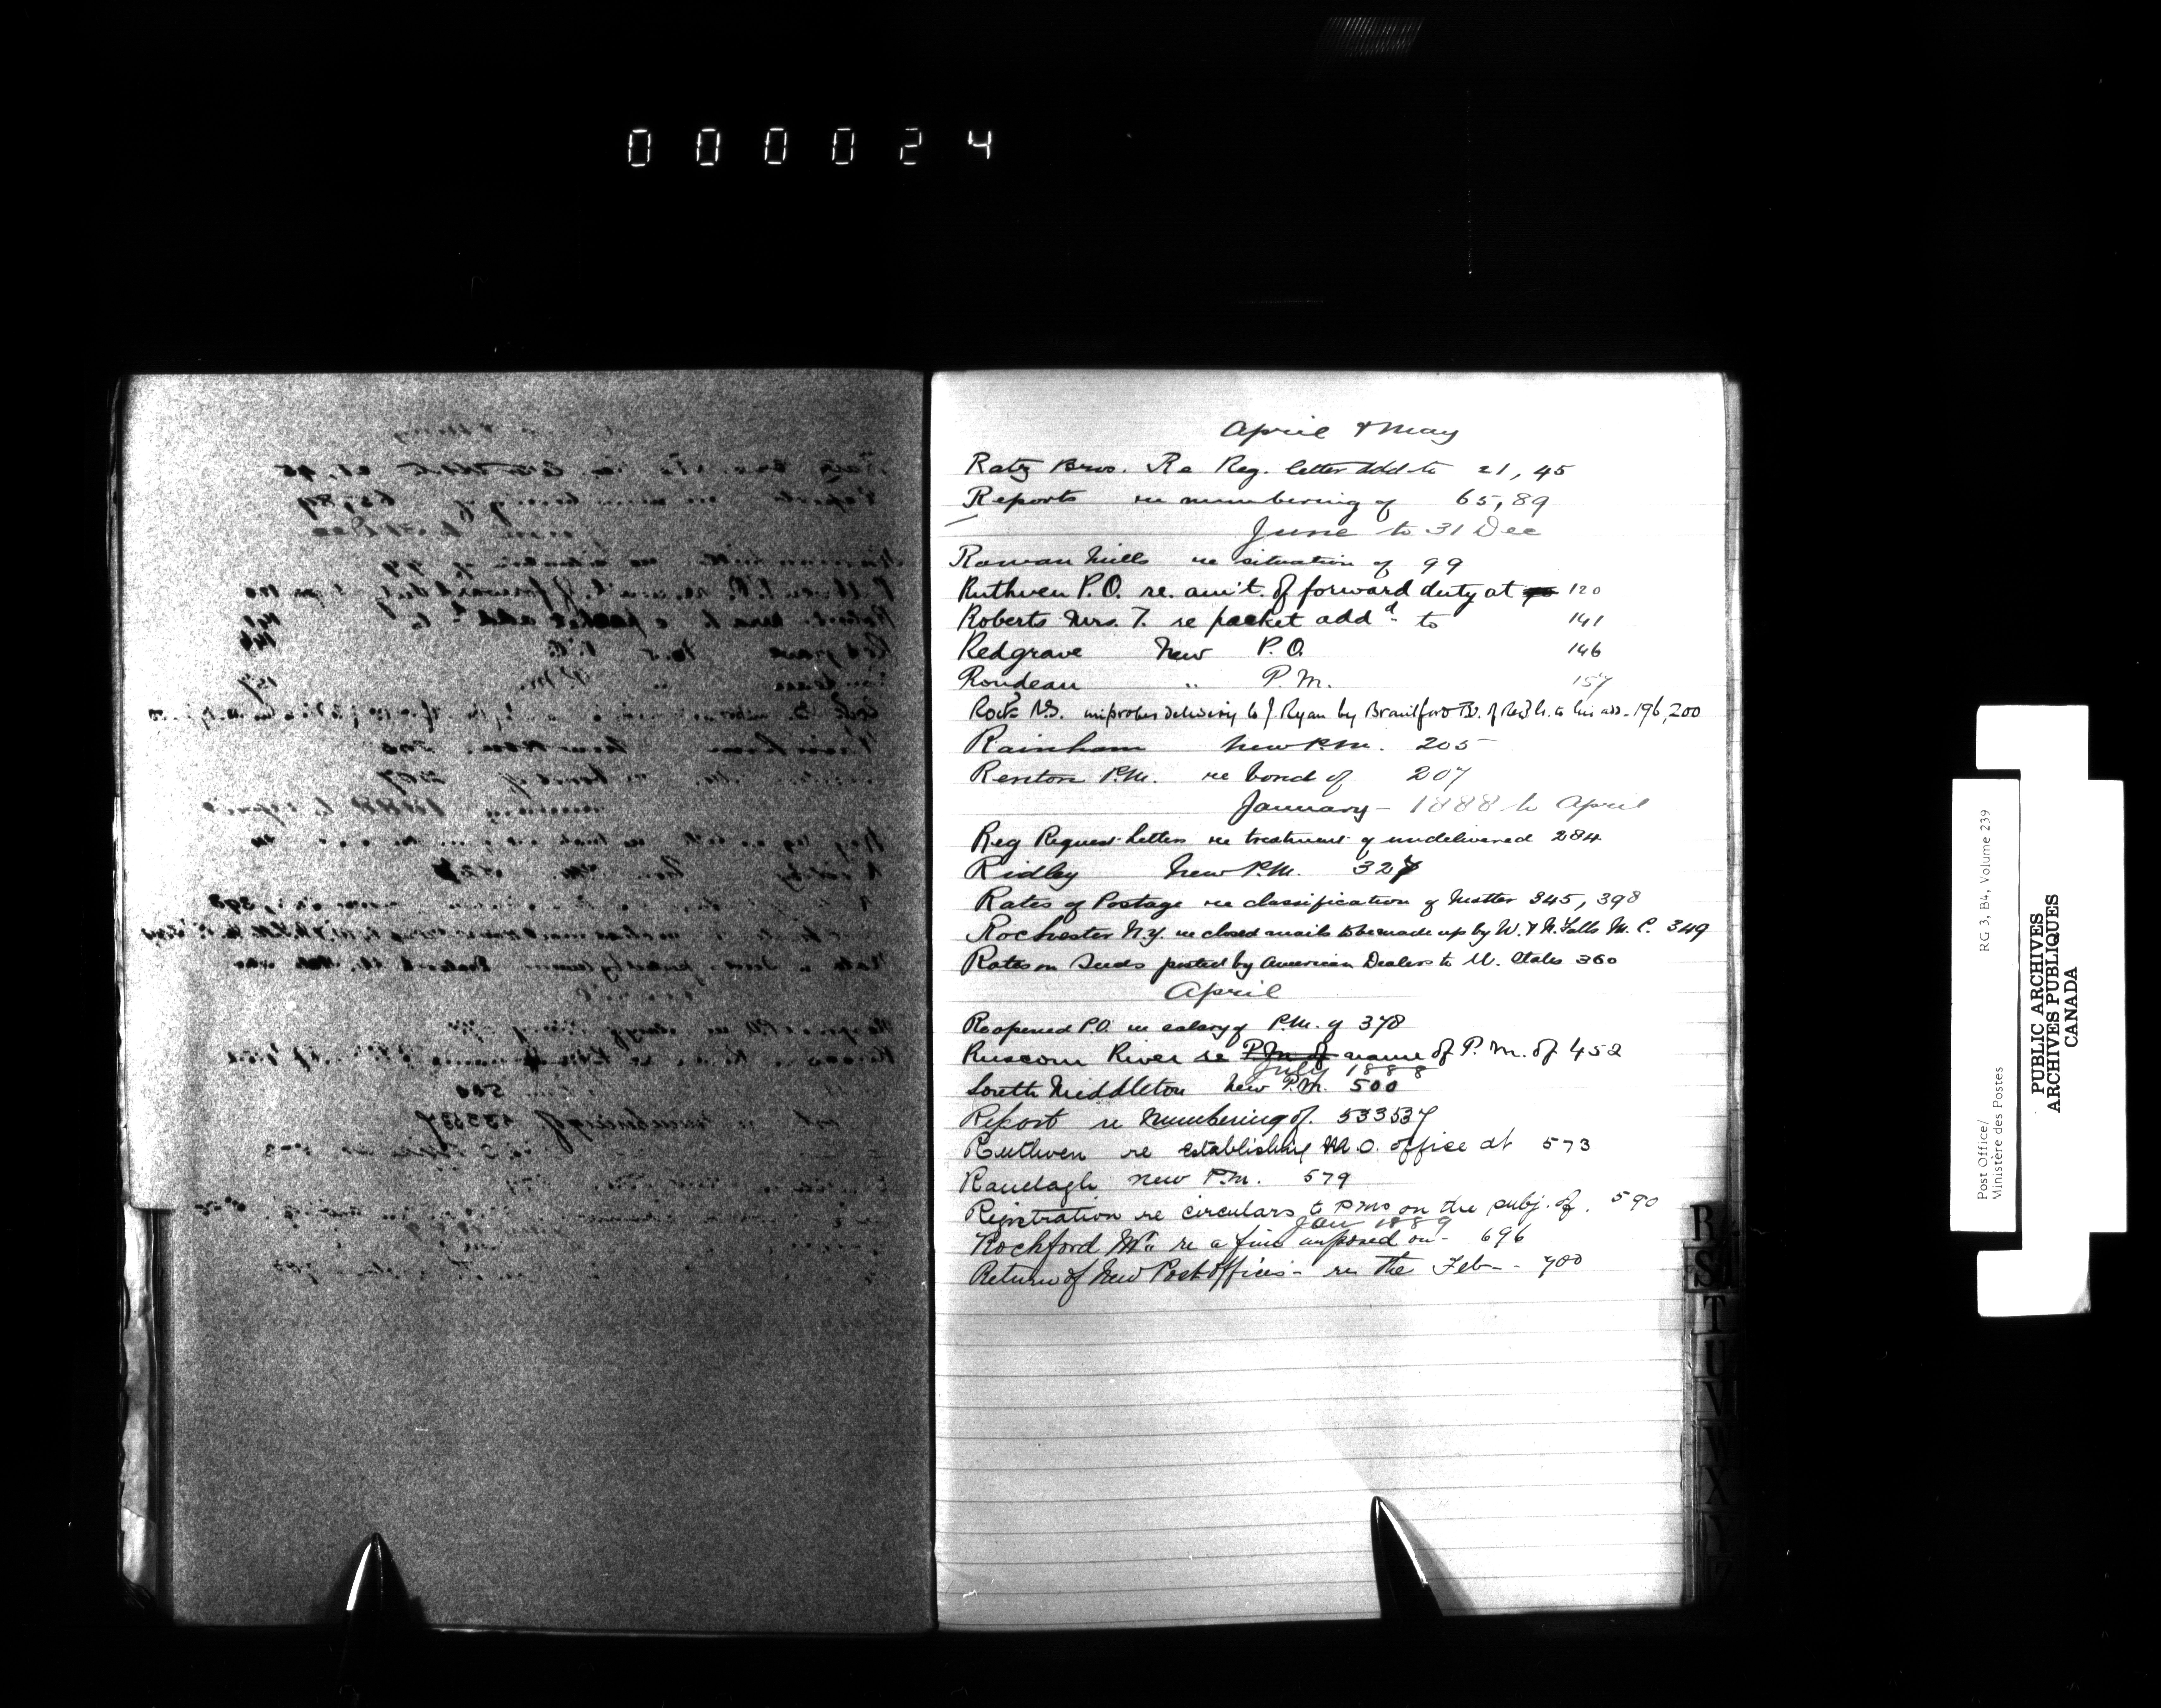 000024
April & May
Ratz Bros. Re Reg. letter add to 21, 45
Reports re numbering of 65, 89
June to 31 Dec
Rowan Mills re situation of 99
Ruthven P.O. re. am't. of forward duty at 120
Roberts Mrs. T. re packet addd. to 141
Redgrave New P.O. 146
Rondeau " P.M. 157
improper delivery to J. Ryan by Brantford to his add. 196, 200
Rainham New P.M. 205
Renton P.M. re bond of 207
January - 1888 to April
Reg Request Letters re treatment of undelivered 284
Ridley New P.M. 327
Rates of Postage re classification of Matter 345, 398
Rochester N.Y. re closed mails to be made up by W. & N. Falls M.C. 349
Rates on Seeds posted by American Dealers to U. States 360
April
Reopened P.O. re salary of P.M. of 378
Ruscom River re P.M. of name of P.M. of 452
July 1888
South Middleton New P.M. 500
Report re Numbering of. 533537
Ruthven re establishing M.O. office at 573
Ranelagh New P.M. 579
Registration re circulars to PMs on the subj. of. 590
Jan 1889
Rochford Mr re a fine imposed on - 696
Return of New Post Offices - re the Feb - 700
R
S
T
U
V
W
X
Y
Z
Post Office/
Ministère des Postes
RG 3, B4, Volume 239
PUBLIC ARCHIVES
ARCHIVES PUBLIQUES
CANADA